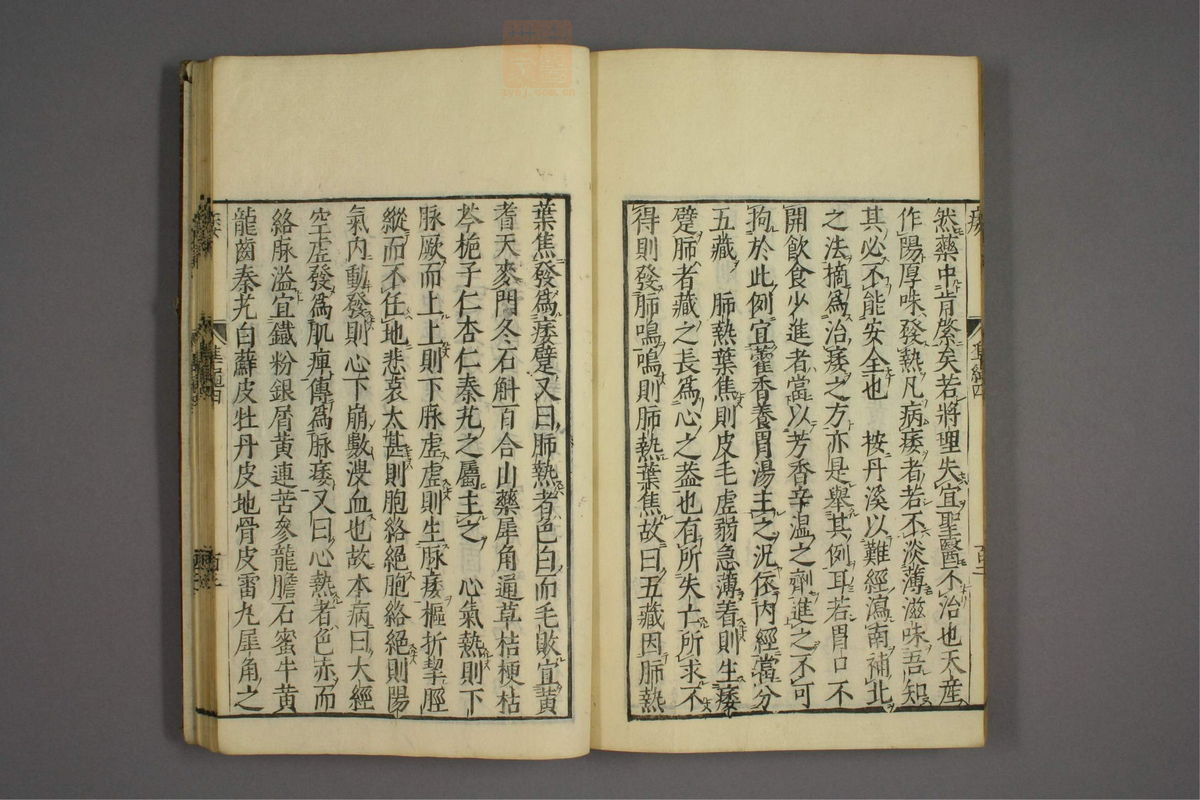 然藥中肯綮矣若將理失宜聖醫不治也天産
作陽厚味發熱凡病痿者若不淡薄滋味吾知
其必不能安全也　按丹溪以難經瀉南補北
之法摘爲治痿之方亦是舉其例耳若胃口不
開飲食少進者當以芳香辛温之劑進之不可
拘於此例宜藿香養胃湯主之况依内經當分
五藏　肺熱葉焦則皮毛虚弱急薄着則生痿
躄肺者藏之長爲心之蓋也有所失亡所求不
得則發肺鳴鳴則肺熱葉焦故曰五藏因肺熱
葉焦發爲痿躄又曰肺熱者色白而毛敗宜黄
耆天麥門冬石斛百合山藥犀角通草桔梗枯
芩梔子仁杏仁秦艽之屬主之　心氣熱則下
脉厥而上上則下脉虚虚則生脉痿樞折挈脛
縱而不任地悲哀太甚則胞絡絶胞絡絶則陽
氣内動發則心下崩數溲血也故本病曰大經
空虚發爲肌痺傳爲脉痿又曰心熱者色赤而
絡脉溢宜鐵粉銀屑黄連苦參龍膽石蜜牛黄
龍齒秦艽白蘚皮牡丹皮地骨皮雷丸犀角之